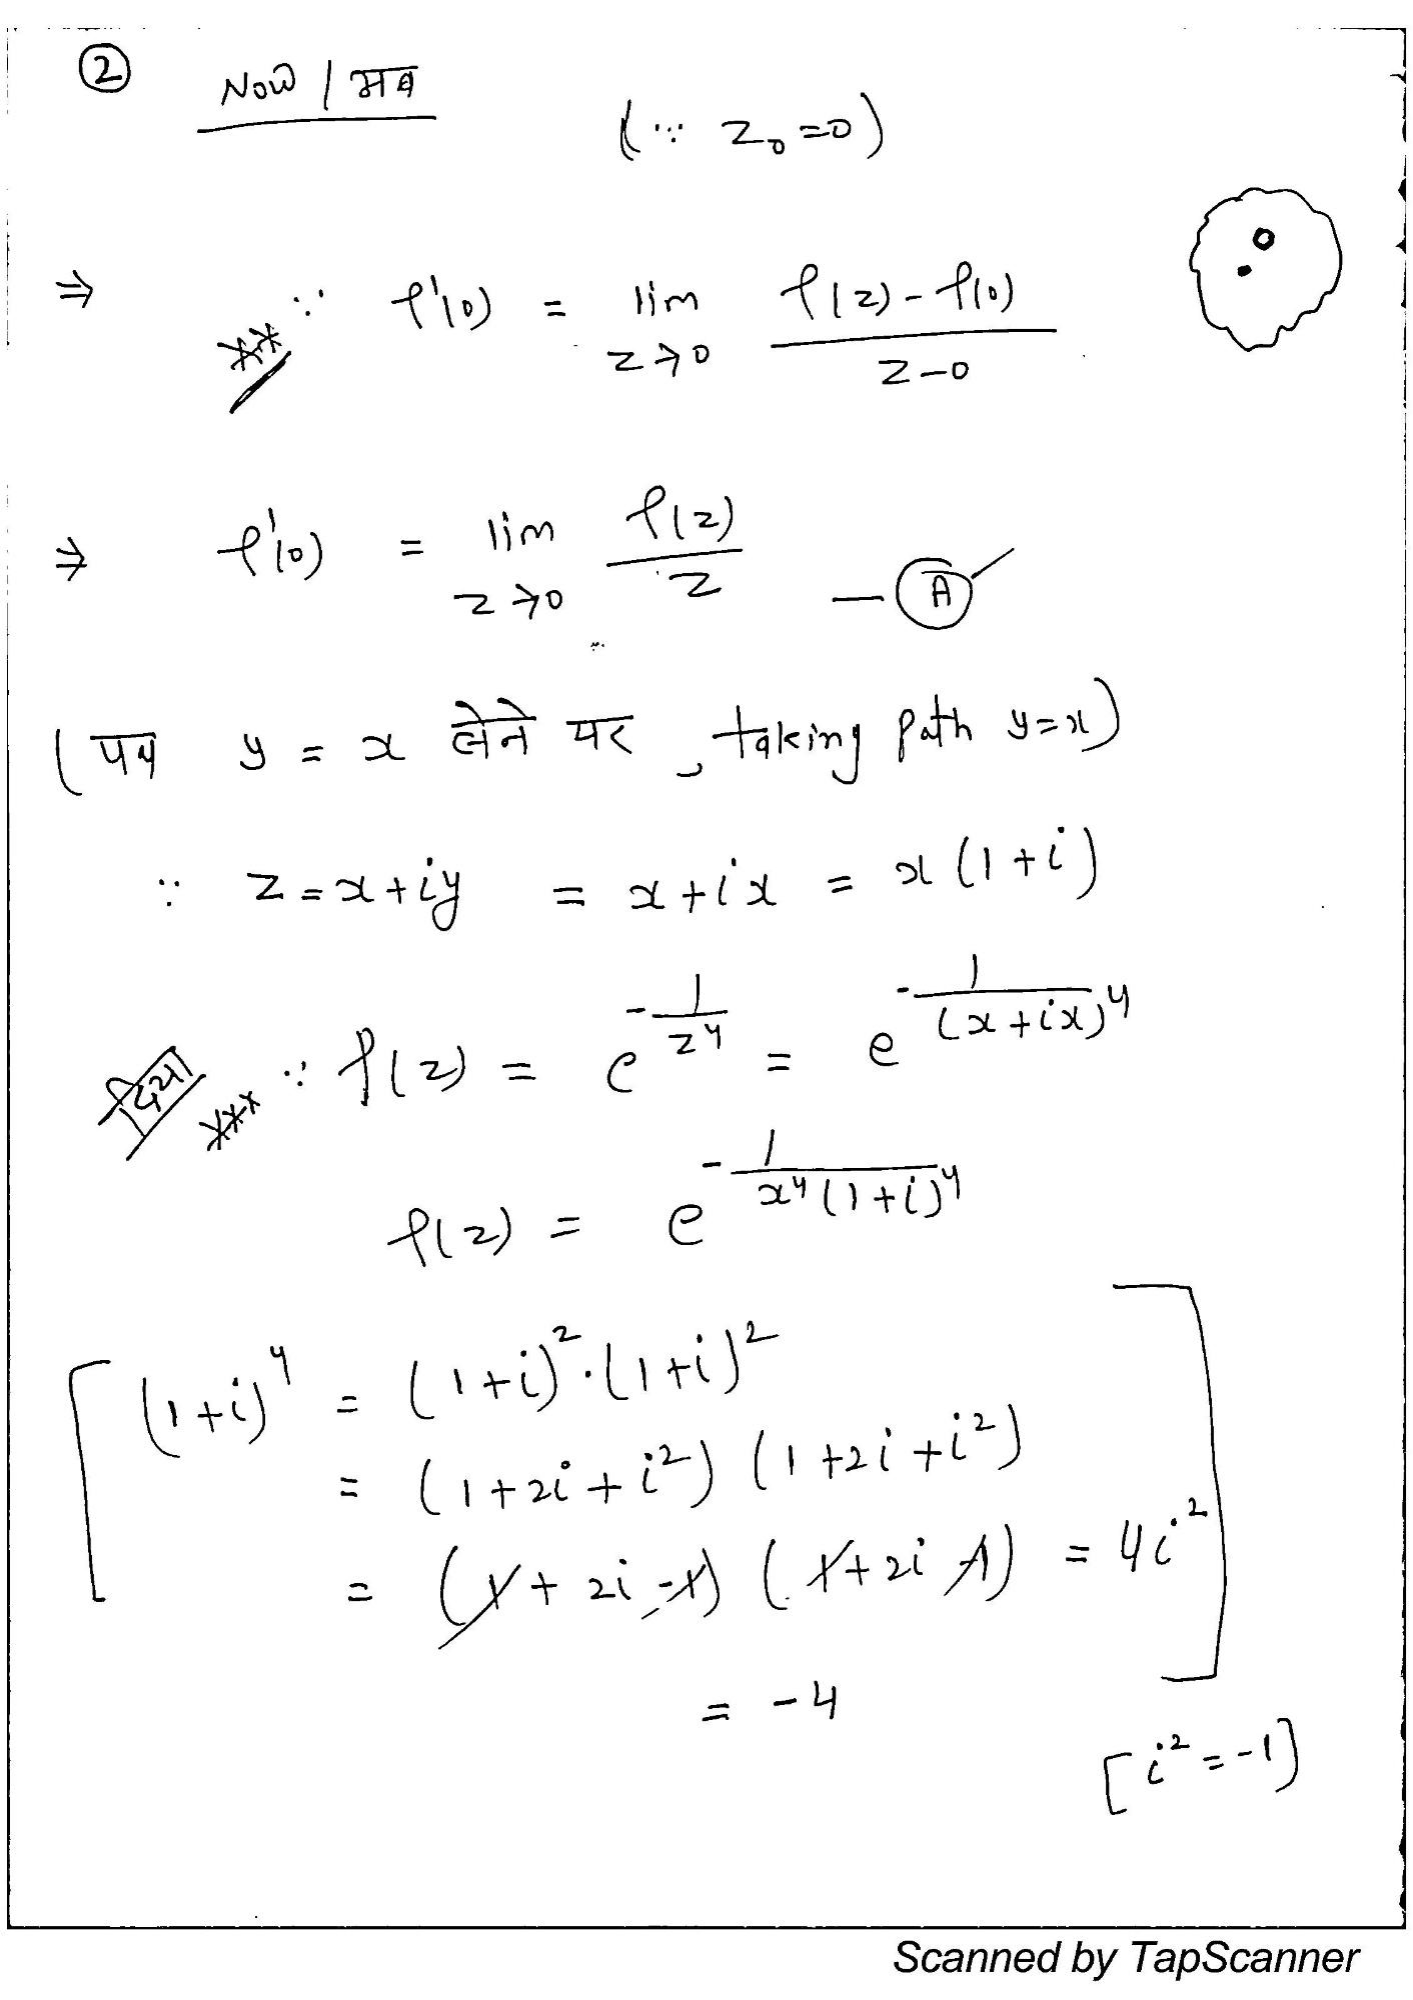 ② Now / अब
(∵ z₀ = 0)
⇒ ** ∵ f'(0) = lim z→0 f(z) - f(0) / z - 0
⇒ f'(0) = lim z→0 f(z) / z — Ⓐ
(पथ y = x लेने पर, taking path y = x)
∵ z = x + iy = x + ix = x(1 + i)
दिया *** ∵ f(z) = e^(-1/z⁴) = e^(-1/(x + ix)⁴)
f(z) = e^(-1/x⁴(1 + i)⁴)
[(1 + i)⁴ = (1 + i)² · (1 + i)²
= (1 + 2i + i²) (1 + 2i + i²)
= (1 + 2i - 1) (1 + 2i - 1) = 4i²]
= -4
[i² = -1]
Scanned by TapScanner